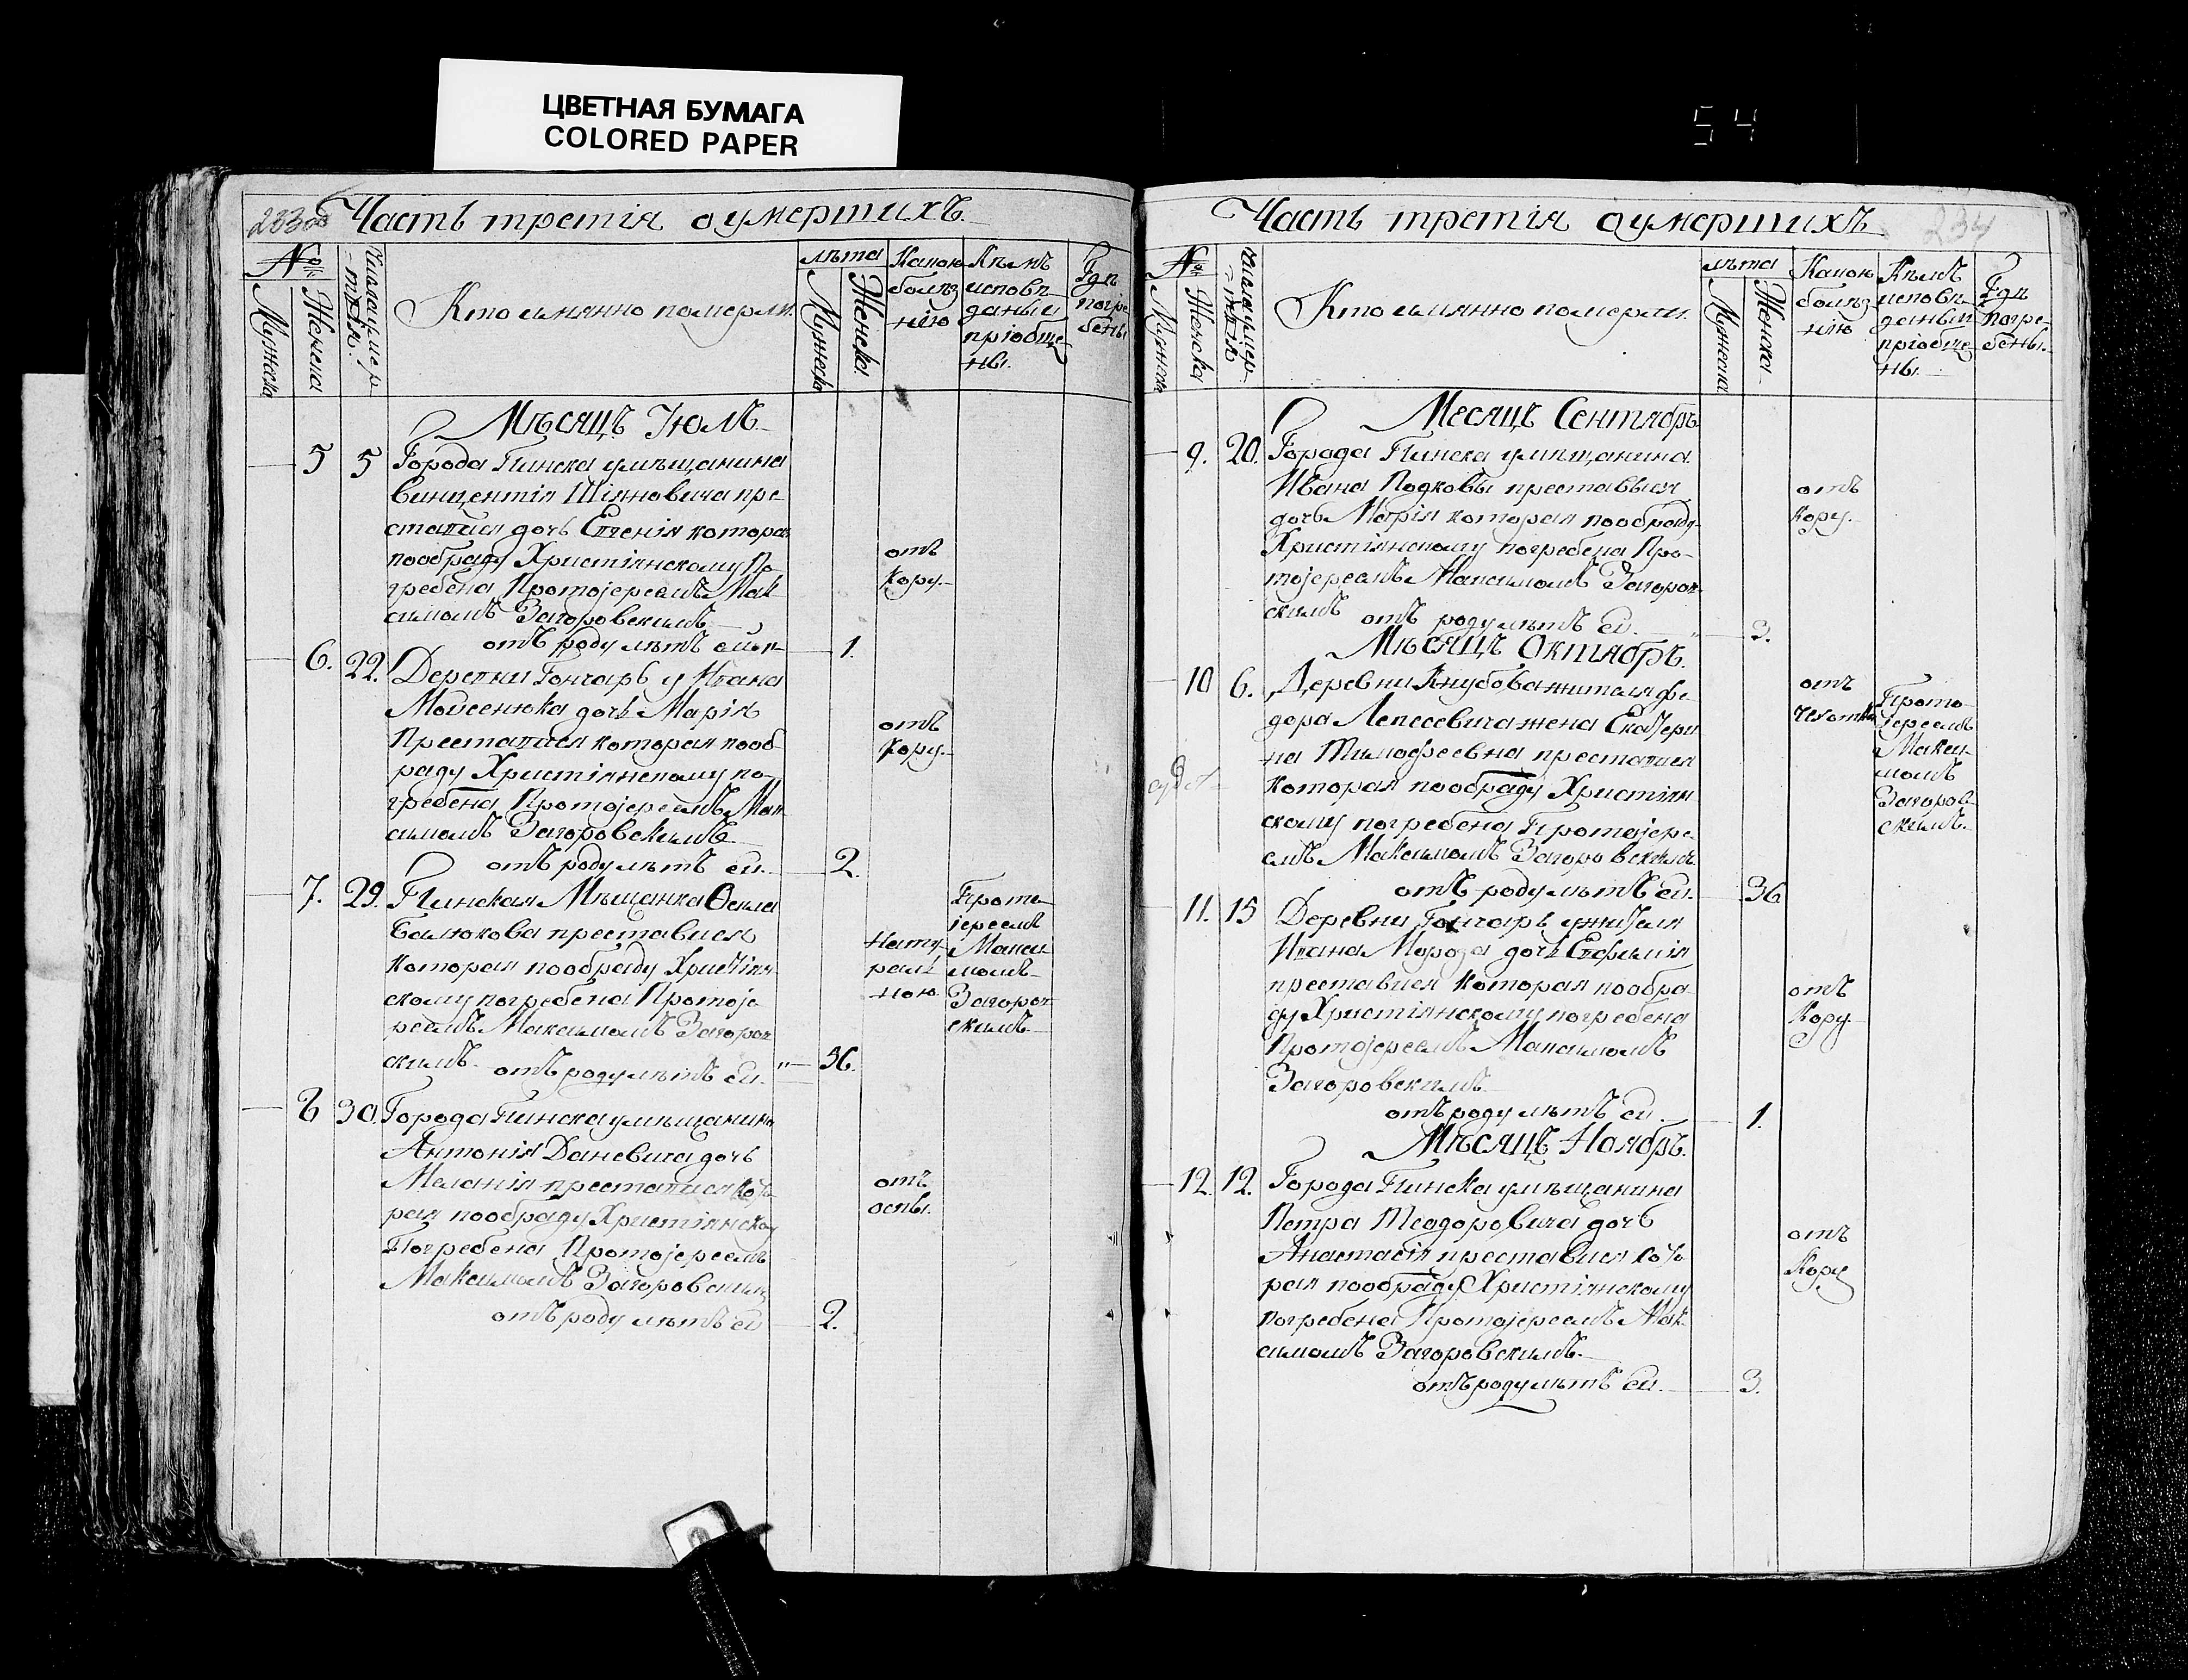 ЦВЕТНАЯ БУМАГА
COLORED PAPER
54
233об
Часть третія оумершихъ
№
Мужеска
Женска
лѣта
Мужеска
Женска
Кто имянно померли.
Какою
болѣз
нію
Кѣмъ
исповѣ
даны и
пріобще
ны.
Гдѣ
погре
бены
Мѣсяцъ Іюль
5 5 Города Пинска умѣщанина
Винцентія
пре
ставися дочь Евгенія котора
пообряду Христіянскому По
гребена Протоіереемъ Мак
симомъ Загоровскимъ
отъ роду лѣтъ
1.
отъ
Кору.
6. 22. Деревни Гончаръ у Ивана
Мойсенюка дочь Марія
Преставися которая пооб
ряду Христіянскому по
гребена Протоіереемъ Мак
симомъ Загоровскимъ
отъ роду лѣтъ ей.
2.
отъ
Кору.
7. 29. Пинская Мѣщанка
преставися
которая пообряду Христіян
скому погребена Протоіе
реемъ Максимомъ Загоров
скимъ отъ роду лѣтъ ей.
56.
Нату
раль
ною
Прото
іереемъ
Макси
момъ
Загоров
скимъ
8 30. Города Пинска умѣщанина
Антонія Даневича дочь
Меланія преставися кото
рая пообряду Христіянскому
Погребена Протоіереемъ
Максимомъ Загоровским
отъ роду лѣтъ ей
2.
отъ
оспы.
Часть третія оумершихъ
234
№
Мужеска
Женска
Кто имянно померли.
лѣта
Мужеска
Женска
Какою
болѣз
нію
Кѣмъ
исповѣ
даны и
пріобще
ны.
Гдѣ
погре
бены.
Месяцъ Сентябръ
9. 20. Города Пинска умѣщанина
Ивана Подковы преставися
дочь Марія которая пообряду
Христіянскому погребена Про
тоіереемъ Максимомъ Загоров
скимъ отъ роду лѣтъ ей.
3.
отъ
Кору.
Мѣсяцъ Октябръ.
10 6. Деревни Кнубова жителя Фе
дора Лепесевича жена Екатери
на Тимофеевна преставися
которая пообряду Христіян
скому погребена Протоіере
емъ Максимомъ Загоровскимъ
отъ роду лѣтъ ей.
36
отъ
Чехотки
Прото
іереемъ
Макси
момъ
Загоров
скимъ.
11. 15 Деревни Гончаръ ужителя
Ивана Мороза дочь Евфимія
преставися которая пообря
ду Христіянскому погребена
Протоіереемъ Максимомъ
Загоровскимъ
отъ роду лѣтъ ей.
1.
отъ
Кору
Мѣсяцъ Ноябръ.
12. 12. Города Пинска умѣщанина
Петра Теодоровича дочь
Анастасія преставися кото
рая пообряду Христіянскому
погребена Протоіереемъ Мак
симомъ Загоровскимъ.
отъ роду лѣтъ ей.
3.
отъ
Кору